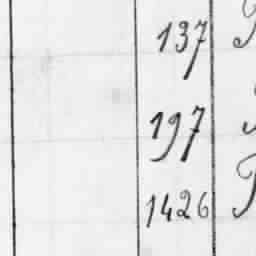 137
197
1426